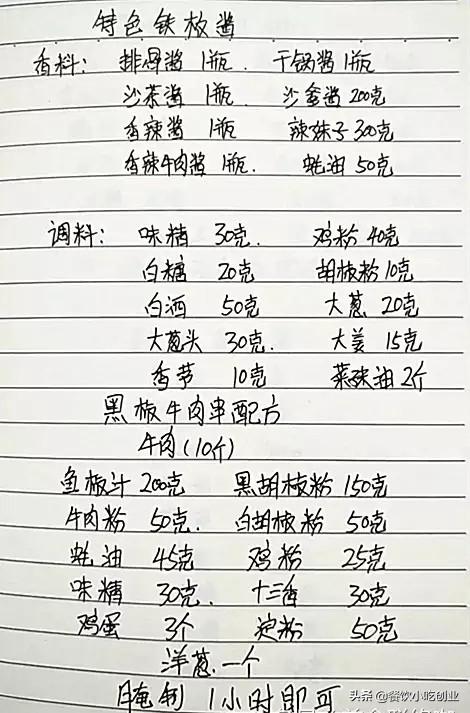 特色铁板酱
香料: 排骨酱 1瓶. 干锅酱 1瓶
沙茶酱 1瓶 沙爹酱 200克
香辣酱 1瓶 辣妹子 300克
香辣牛肉酱 1瓶. 蚝油 50克
调料: 味精 30克. 鸡粉 40克
白糖 20克 胡椒粉 10克
白酒 50克 大葱 20克
大葱头 30克. 大姜 15克
香芹 10克 菜籽油 2斤
黑椒牛肉串配方
牛肉(10斤)
鱼椒汁 200克 黑胡椒粉 150克
牛肉粉 50克. 白胡椒粉 50克
蚝油 45克 鸡粉 25克
味精 30克. 十三香 30克
鸡蛋 3个 淀粉 50克
洋葱.一个
腌制 1小时即可
头条 @餐饮小吃创业